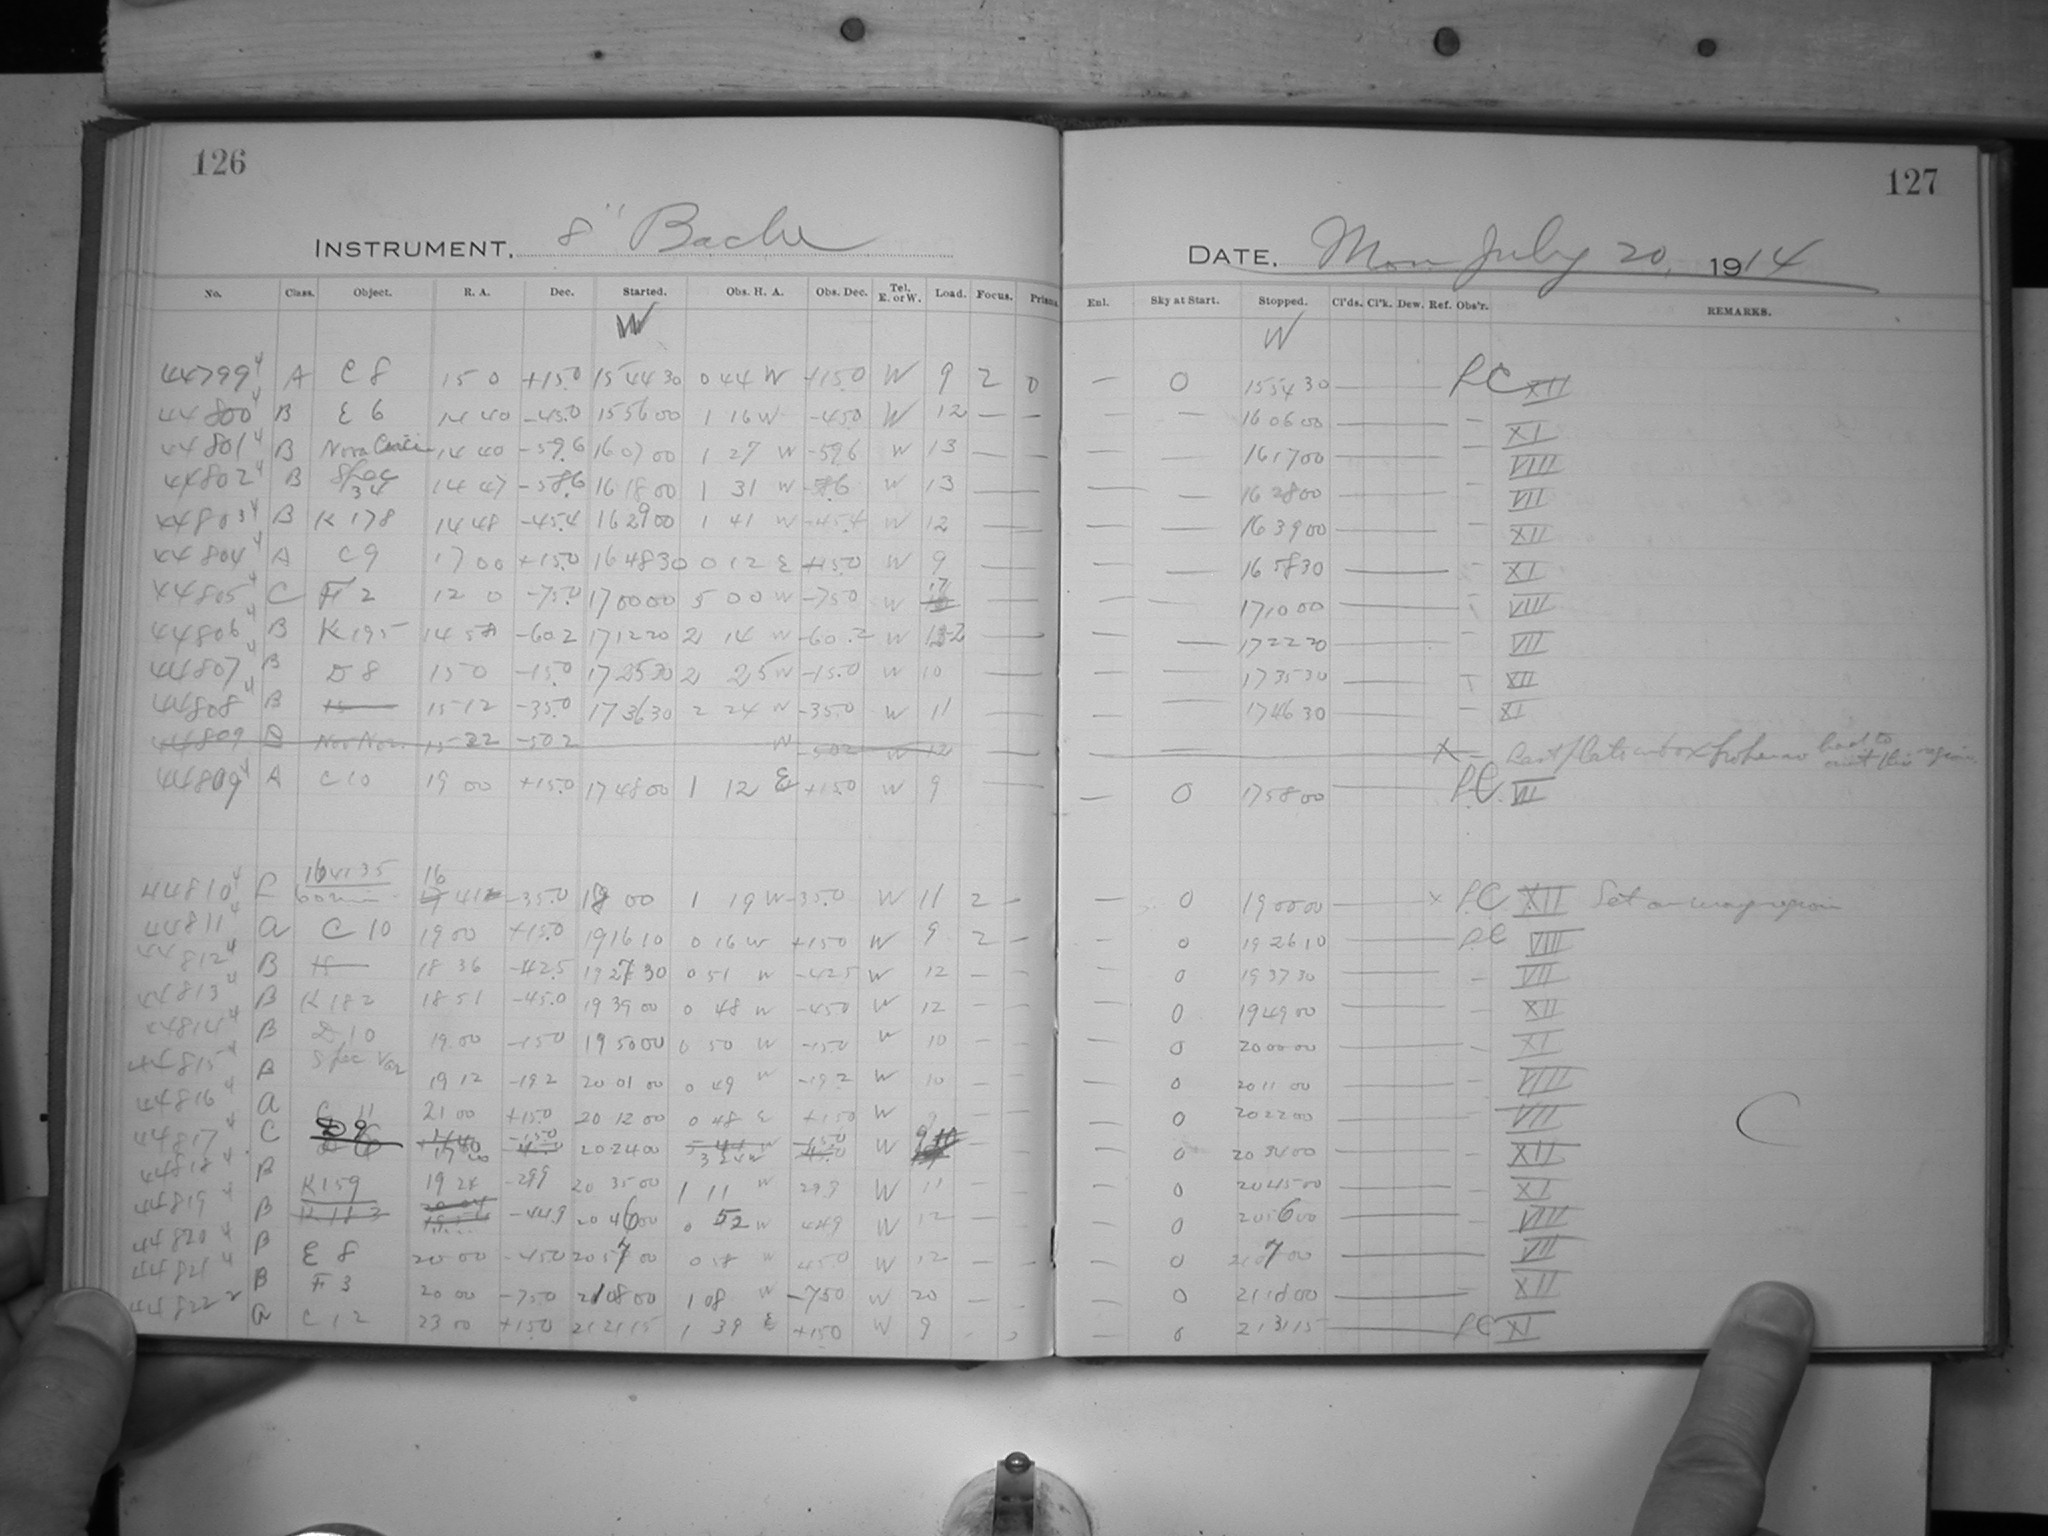 126
INSTRUMENT. 8" Bache
No. Class. Object. R. A. Dec. Started. Obs. H. A. Obs. Dec. Tel. E. or W. Load. Focus. Prism.
W
44799 4 A C 8 15 0 +15.0 15 44 30 0 44 W +15.0 W 9 2 0
44800 4 B E 6 14 40 -45.0 15 56 00 1 16 W -45.0 W 12 — —
44801 4 B Nova 14 40 -59.6 16 07 00 1 27 W -59.6 W 13 — —
44802 4 B Spec 34 14 47 -58.6 16 18 00 1 31 W W 13 —
44803 4 B K 178 14 48 -45.4 16 29 00 1 41 W -45.4 W 12 —
44804 4 A C 9 17 00 +15.0 16 48 30 0 12 E +15.0 W 9 —
44805 4 C F 2 12 0 -75.0 17 00 00 5 00 W -75.0 W 17 —
44806 4 B K 195 14 58 -60.2 17 12 20 2 14 W -60.2 W —
44807 4 B D 8 15 0 -15.0 17 25 30 2 25 W -15.0 W 10 —
44808 4 B 15 12 -35.0 17 36 30 2 24 W -35.0 W 11 —
44809 B Nov Nor. 15 22 -50.2 W -50.2 W 12
44809 4 A C 10 19 00 +15.0 17 48 00 1 12 E +15.0 W 9 —
44810 4 164135 60 min. 16 41 -35.0 18 00 1 19 W -35.0 W 11 2 -
44811 4 A C 10 19 00 +15.0 19 16 10 0 16 W +15.0 W 9 2 —
44812 4 B 18 36 -42.5 19 27 30 0 51 W -42.5 W 12 — —
44813 4 B K 182 18 51 -45.0 19 39 00 0 48 W -45.0 W 12 — —
44814 4 B D 10 19 00 -15.0 19 50 00 0 50 W -15.0 W 10 — —
44815 4 B Spec Var 19 12 -19.2 20 01 00 0 49 W -19.2 W 10 — —
44816 4 A C 11 21 00 +15.0 20 12 00 0 48 E +15.0 W 9 — —
44817 4 C D 9 17 00 -15.0 20 24 00 3 24 W W — —
44818 4 B K 159 19 24 -29.9 20 35 00 1 11 W 29.9 W 11 — —
44819 4 B K 183 -44.9 20 46 00 0 52 W 44.9 W 12 — —
44820 4 B E 8 20 00 -45.0 20 57 00 0 58 W 45.0 W 12 — —
44821 4 B F 3 20 00 -75.0 21 08 00 1 08 W -75.0 W 20 — -
44822 2 A C 12 23 00 +15.0 21 21 15 1 39 E +15.0 W 9
127
DATE. Mon July 20, 1914
Enl. Sky at Start. Stopped. Cl'ds. Cl'k. Dew. Ref. Obs'r. REMARKS.
W
— 0 15 54 30 — LC XII
— — 16 06 00 — - XI
— 16 17 00 — - VIII
— — 16 28 00 — - VII
— — 16 39 00 — - XII
— — 16 58 30 — - XI
— — 17 10 00 — - VIII
— — 17 22 20 — - VII
— 17 35 30 — - XII
— — 17 46 30 — - XI
X — Last plate in box had to omit this region
— 0 17 58 00 — LC VII
— 0 19 00 00 — X LC XII Set on wrong region
— 0 19 26 10 — LC VIII
— 0 19 37 30 — - VII
— 0 19 49 00 — - XII
— 0 20 00 00 — - XI
— 0 20 11 00 — - VIII
— 0 20 22 00 — VII
— 0 20 34 00 — - XII
— 0 20 45 00 — - XI
— 0 20 56 00 — - VIII
— 0 21 07 00 — VII
— 0 21 18 00 — - XII
— 0 21 31 15 — LC XI
C